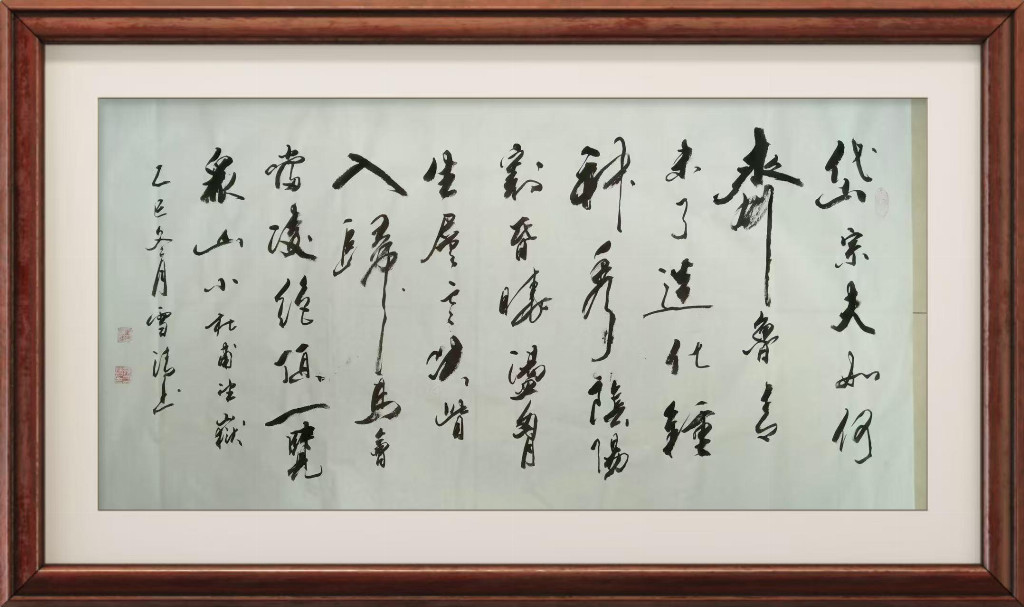 岱宗夫如何
齊魯青
未了造化鍾
神秀陰陽
割昏曉盪胸
生層雲決眥
入歸鳥會
當凌絕頂一覽
眾山小杜甫望嶽
乙巳冬月雪